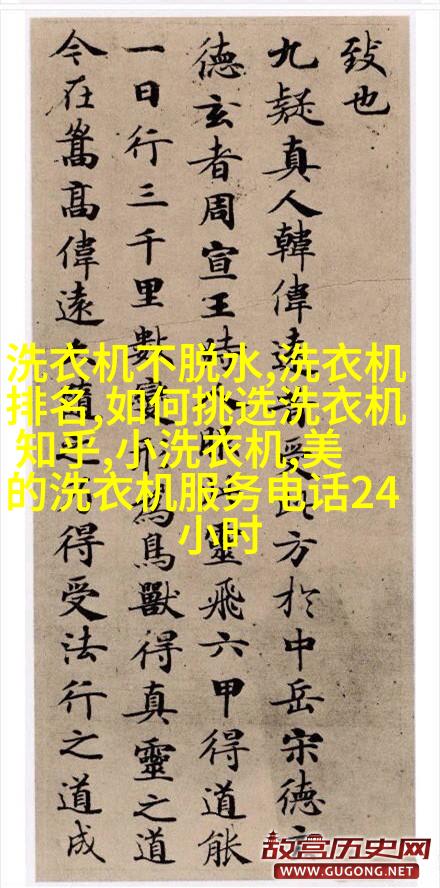 致也
九疑真人韓偉遠受方於中岳宋德玄
德玄者周宣王靈飛六甲得道能
一日行三千里數鳥獸得真靈之道
今在嵩高偉遠得受法行之道成
洗衣机不脱水,洗衣机
排名,如何挑选洗衣机
知乎,小洗衣机,美
的洗衣机服务电话24
小时
故宫历史网
WWW.GUGONG.NET